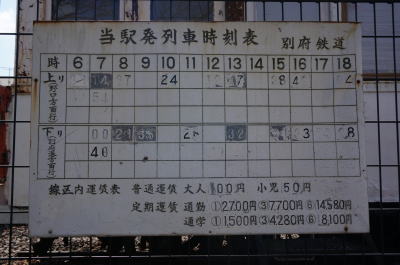 当駅発列車時刻表 別府鉄道
時 6 7 8 9 10 11 12 13 14 15 16 17 18
上り 14 24 4
(野口方面行)
下り 00 28 32 3 8
46
線区内運賃表 普通運賃 大人 100円 小児 50円
定期運賃 通勤 ①2,700円 ③7,700円 ⑥14,580円
通学 ①1,500円 ③4,280円 ⑥8,100円